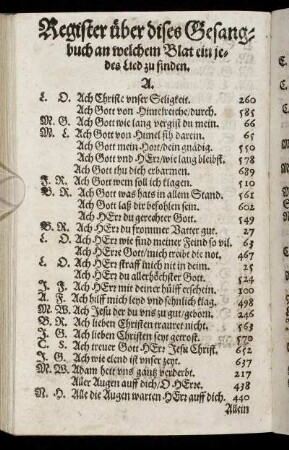 Register über dises Gesang-
buch an welchem Blat ein je-
des Lied zu finden.
A.
L. O. Ach Christe vnser Seligkeit. 260
Ach Gott von Himelreiche/durch. 585
M. G. Ach Gott wie lang vergist du mein. 66
M. L. Ach Gott von Himel sih darein. 65
Ach Gott mein Hort/dein gnädig. 550
Ach Gott vnd HErr/wie lang bleibst. 578
Ach Gott thu dich erbarmen. 689
J. R. Ach Gott wem soll ich klagen. 510
B. R. Ach Gott was hats in allem Stand. 561
Ach Gott laß dir befohlen sein. 602
Ach HErr du gerechter Gott. 549
B. R. Ach HErr du frommer Vatter gut. 27
L. O. Ach HErr wie sind meiner Feind so vil. 63
Ach HErre Gott/mich treibt die not. 467
L. O. Ach HErr straff mich nit in deim. 25
Ach HErr du allerhöchster Gott. 524
J. F. Ach HErr mit deiner hülff erschein. 100
A. F. Ach hilff mich leyd vnd sehnlich klag. 498
M. W. Ach Jesu der du vns zu gut/geborn. 246
B. R. Ach lieben Christen trauret nicht. 563
J. G. Ach lieben Christen seyt getrost. 570
C. S. Ach treuer Gott HErr Jesu Christ. 652
J. G. Ach wie elend ist vnser zeyt. 637
M. W. Adam hett vns gantz verderbt. 217
Aller Augen auff dich/O HErre. 438
N. H. Alle die Augen warten HErr auff dich. 440
Allein